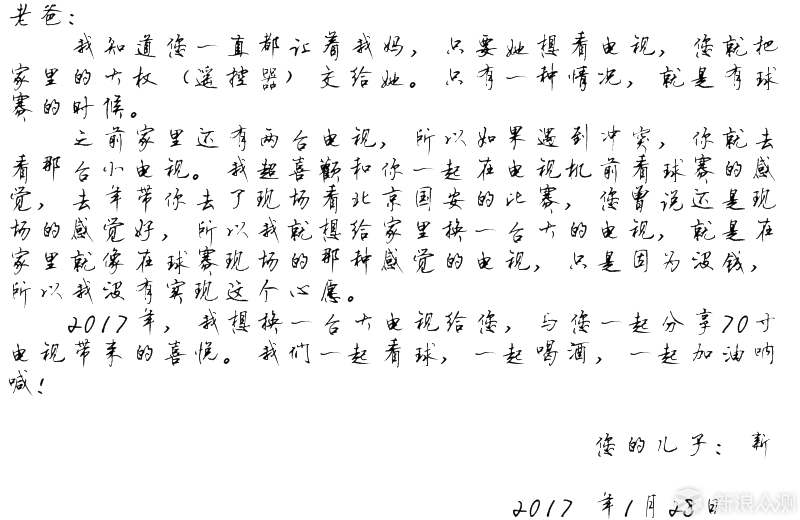 老爸：
我知道您一直都让着我妈，只要她想看电视，您就把
家里的大权（遥控器）交给她。只有一种情况，就是有球
赛的时候。
之前家里还有两台电视，所以如果遇到冲突，你就去
看那台小电视。我超喜欢和你一起在电视机前看球赛的感
觉，去年带你去了现场看北京国安的比赛，您曾说还是现
场的感觉好，所以我就想给家里换一台大的电视，就是在
家里就像在球赛现场的那种感觉的电视，只是因为没钱，
所以我没有实现这个心愿。
2017年，我想换一台大电视给您，与您一起分享70寸
电视带来的喜悦。我们一起看球，一起喝酒，一起加油呐
喊！
您的儿子：新
2017 年1月25日
新浪众测